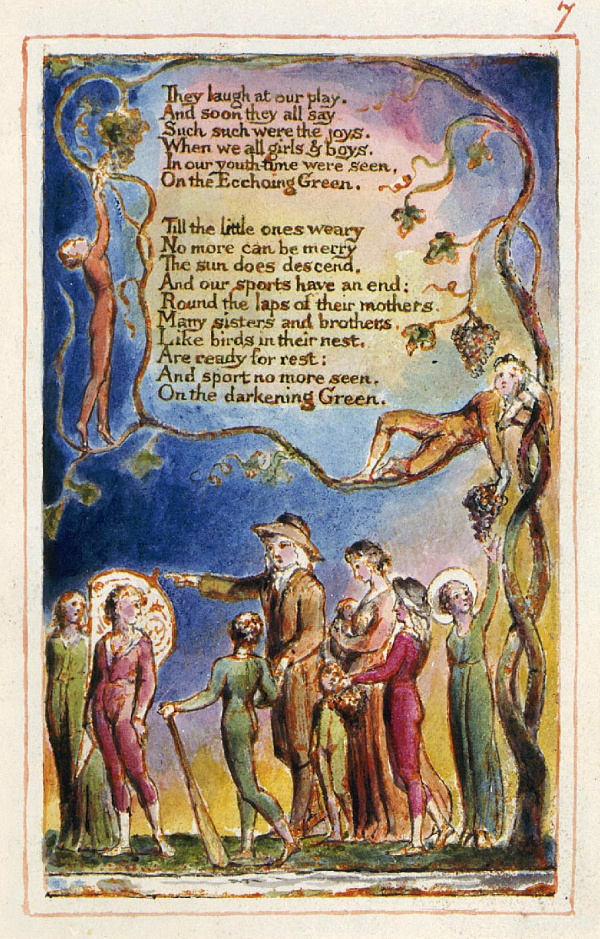 7
They laugh at our play.
And soon they all say
Such such were the joys.
When we all girls & boys.
In our youth-time were seen,
On the Ecchoing Green.
Till the little ones weary
No more can be merry
The sun does descend,
And our sports have an end:
Round the laps of their mothers.
Many sisters and brothers,
Like birds in their nest.
Are ready for rest:
And sport no more seen,
On the darkening Green.